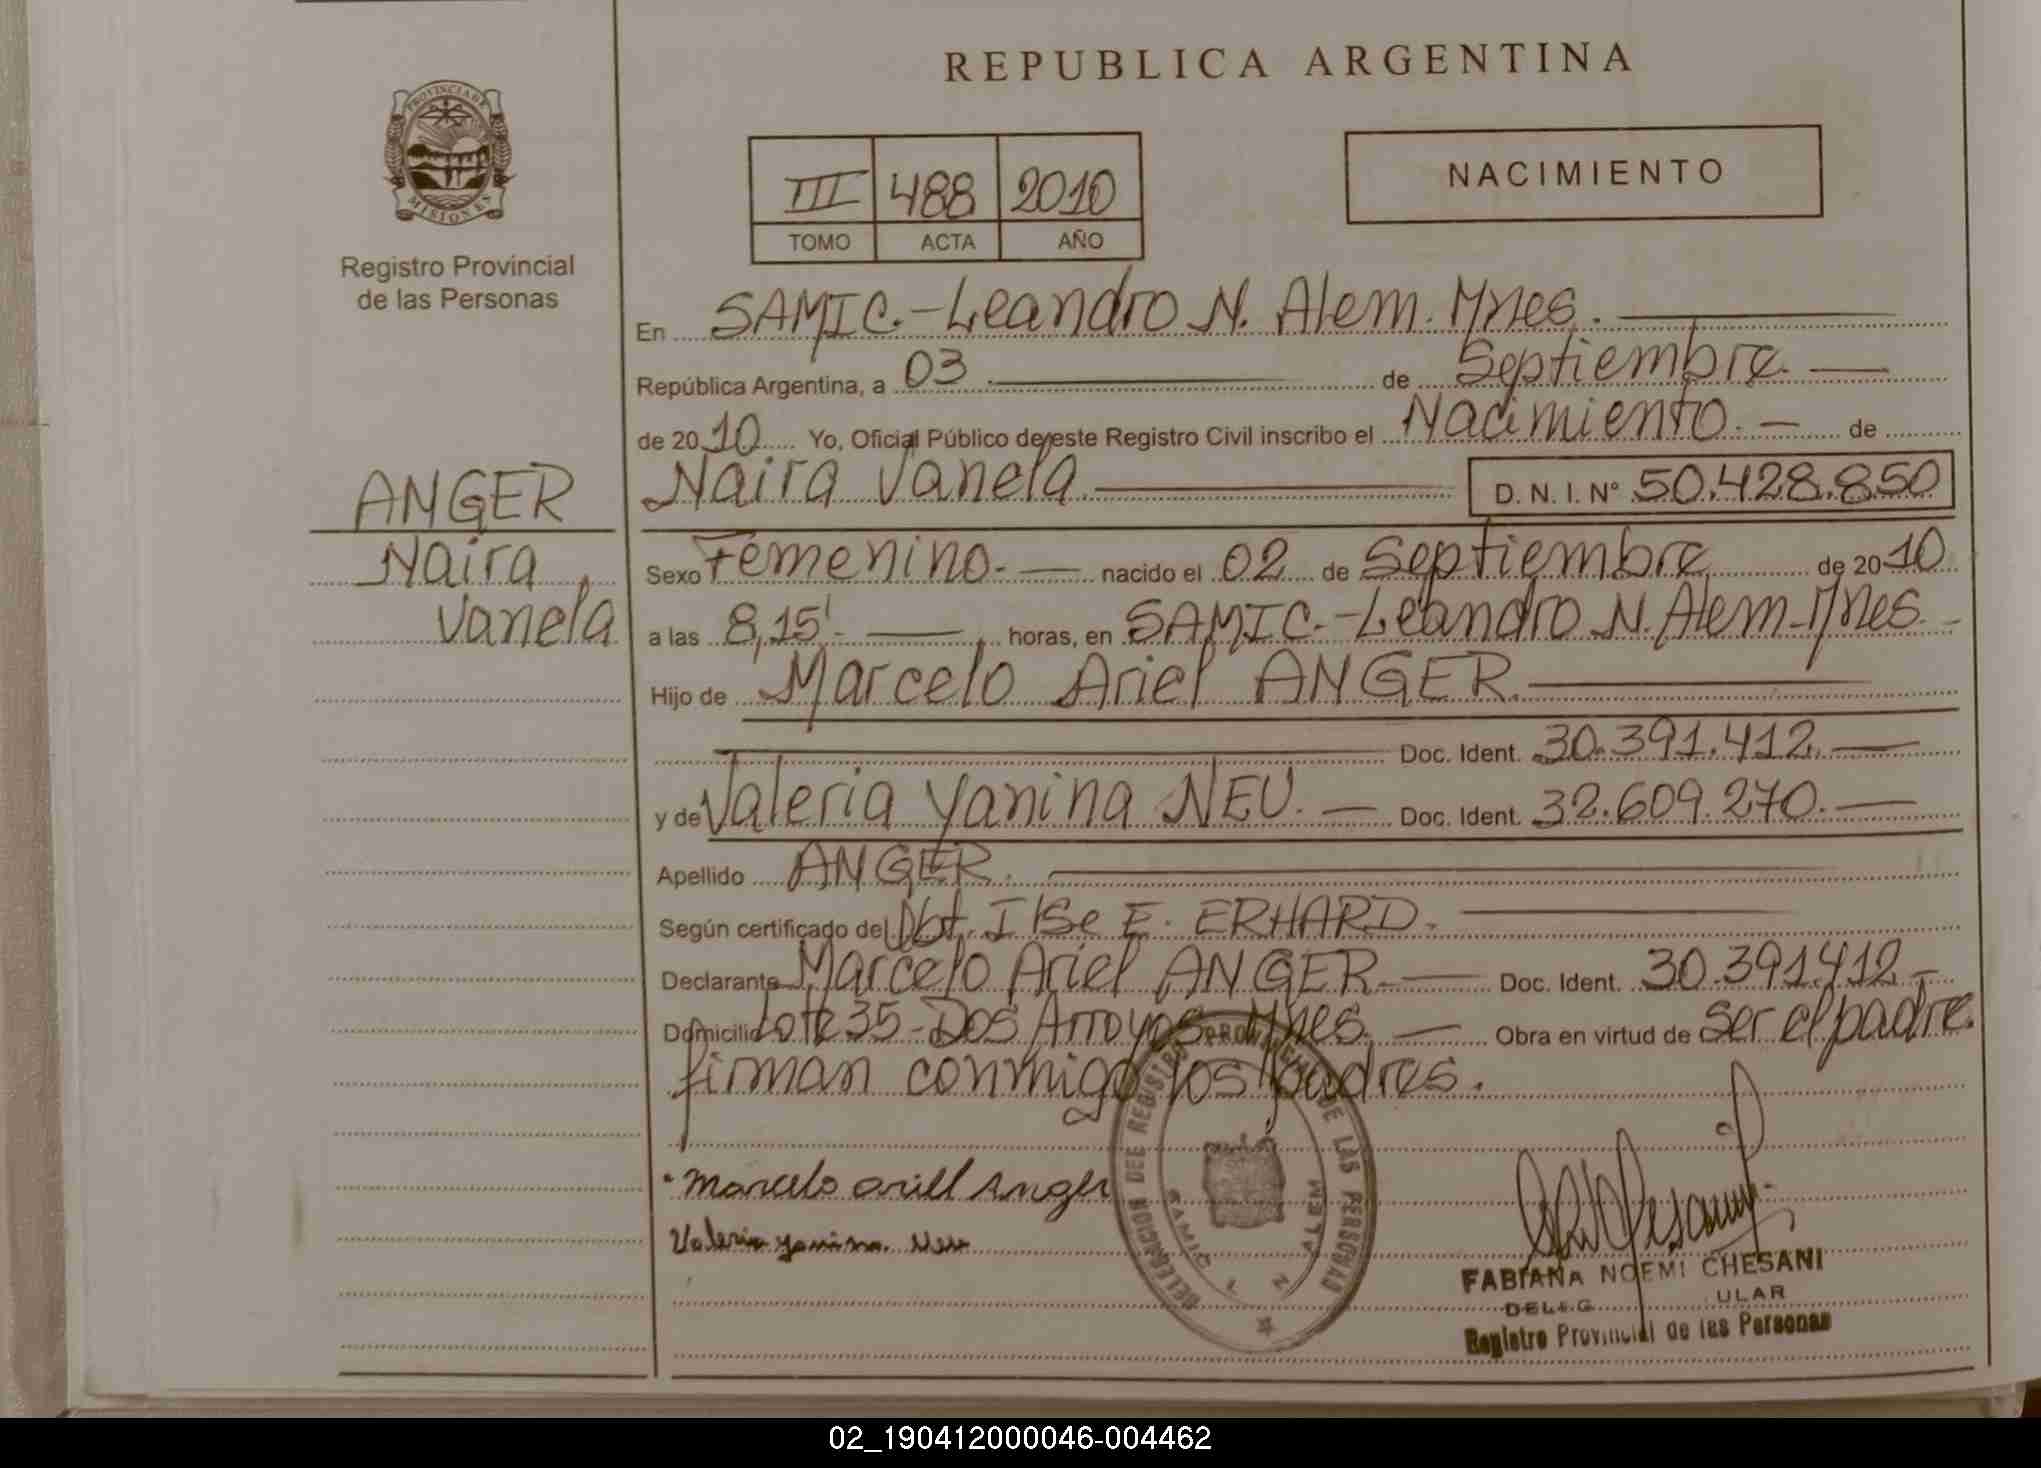 REPUBLICA ARGENTINA
PROVINCIA DE
MISIONES
Registro Provincial
de las Personas
III 488 2010
TOMO ACTA AÑO
NACIMIENTO
En SAMIC.-Leandro N. Alem. Mnes.
República Argentina, a 03 de Septiembre.
de 2010 Yo, Oficial Público de este Registro Civil inscribo el Nacimiento. de
Naira Vanela. D. N. I. Nº 50.428.850
ANGER
Naira
Vanela
Sexo Femenino. nacido el 02 de Septiembre de 2010
a las 8,15'. horas, en SAMIC.-Leandro N. Alem-Mnes.
Hijo de Marcelo Ariel ANGER.
Doc. Ident. 30.391.412.
y de Valeria Yanina NEU. Doc. Ident. 32.609.270.
Apellido ANGER.
Según certificado del Obt. Ilse E. ERHARD.
Declarante Marcelo Ariel ANGER. Doc. Ident. 30.391.412
Domicilio Lote 35-Dos Arroyos-Mnes. Obra en virtud de ser el padre.
firman conmigo los padres.
Marcelo Ariell Anger
Valeria yanina Neu
DELEGACION DEL REGISTRO PROVINCIAL DE LAS PERSONAS
SAMIC L N ALEM
FABIANA NOEMI CHESANI
DELEG ULAR
Registro Provincial de las Personas
02_190412000046-004462